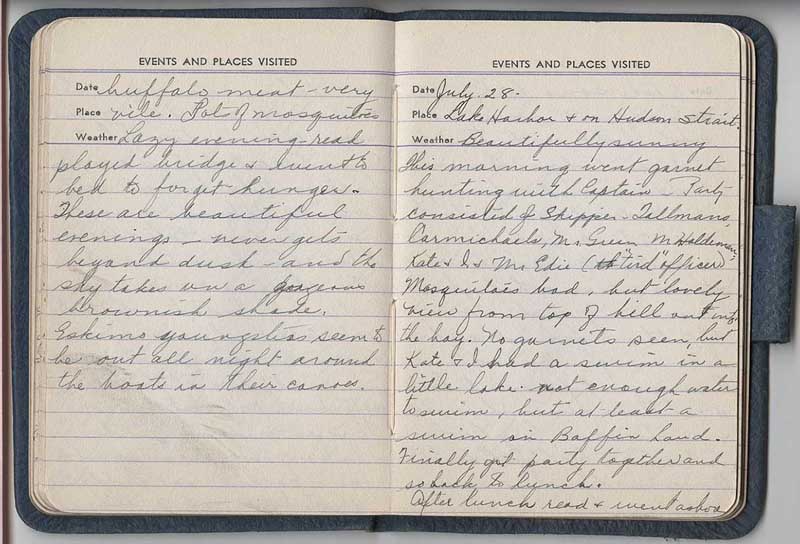 EVENTS AND PLACES VISITED
Date buffalo meat - very
Place vile. Lots of mosquitoes
Weather Lazy evening - read
played bridge & went to
bed to forget hunger.
These are beautiful
evenings - never gets
beyond dusk - and the
sky takes on a gorgeous
brownish shade.
Eskimo youngsters seem to
be out all night around
the boats in their canoes.
EVENTS AND PLACES VISITED
Date July 28.
Place Lake Harbor & on Hudson Strait.
Weather Beautifully sunny
This morning went garnet
hunting with Captain - Party
consisted of Skipper - Tallmans,
Carmichaels, Mr. Green Mr Haldeman
Kate & I & Mr. Edie ("tird" officer)
Mosquitoes bad, but lovely
view from top of hill out into
the bay. No garnets seen, but
Kate & I had a swim in a
little lake. not enough water
to swim, but at least a
swim on Baffin Land.
Finally got party together and
so back to lunch.
After lunch read & went ashore